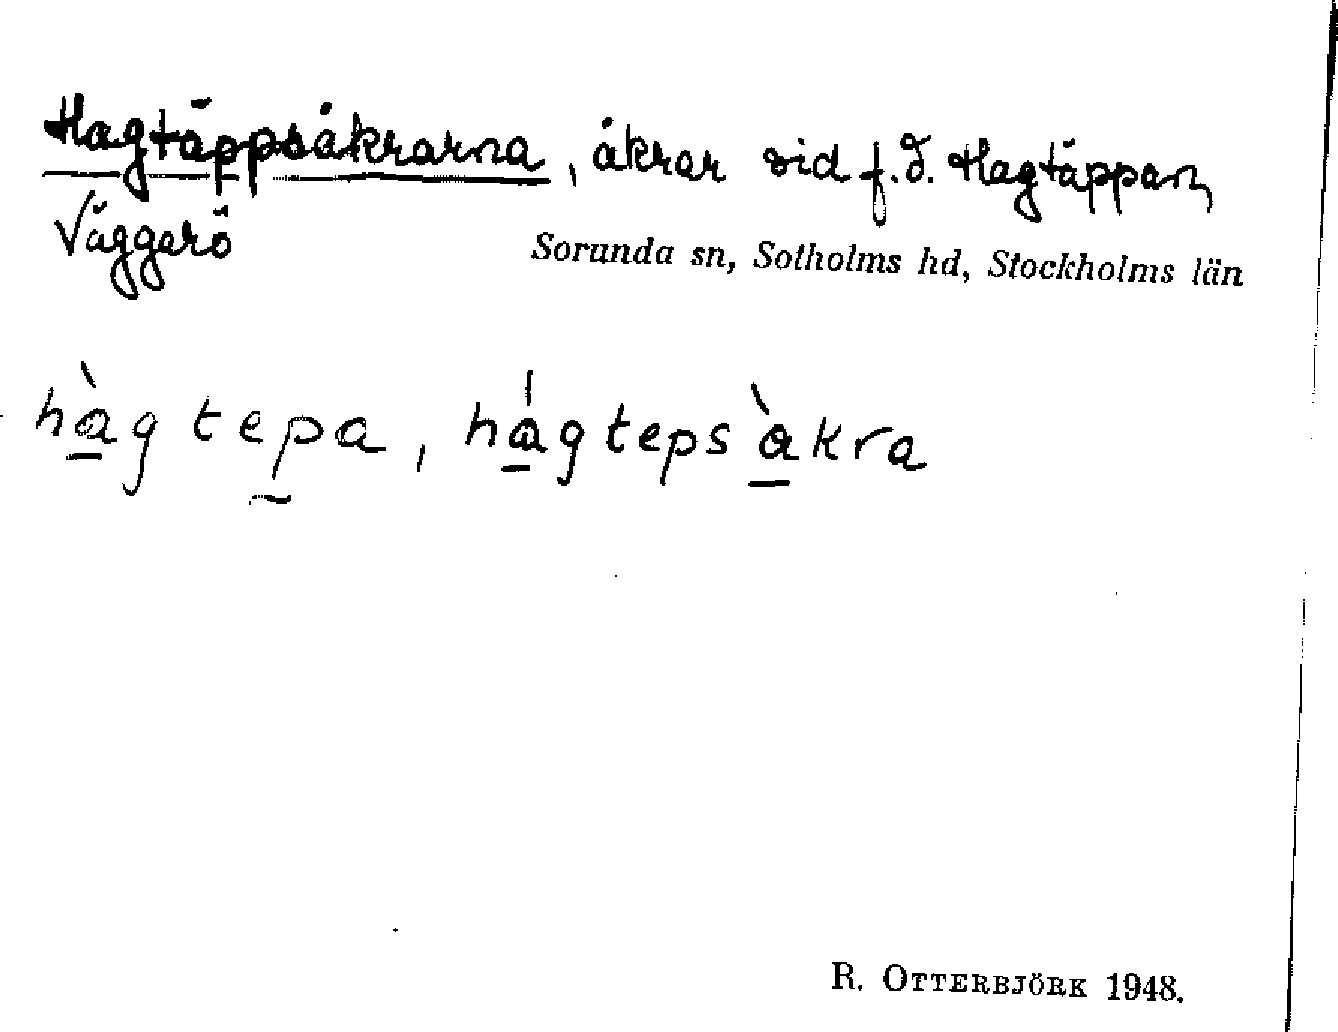 Hagtäppsåkrarna, åkrar vid f.d. Hagtäppan,
Väggarö
Sorunda sn, Sotholms hd, Stockholms län
hàg tepa, hágtepsàkra
R. OTTERBJÖRK 1948.